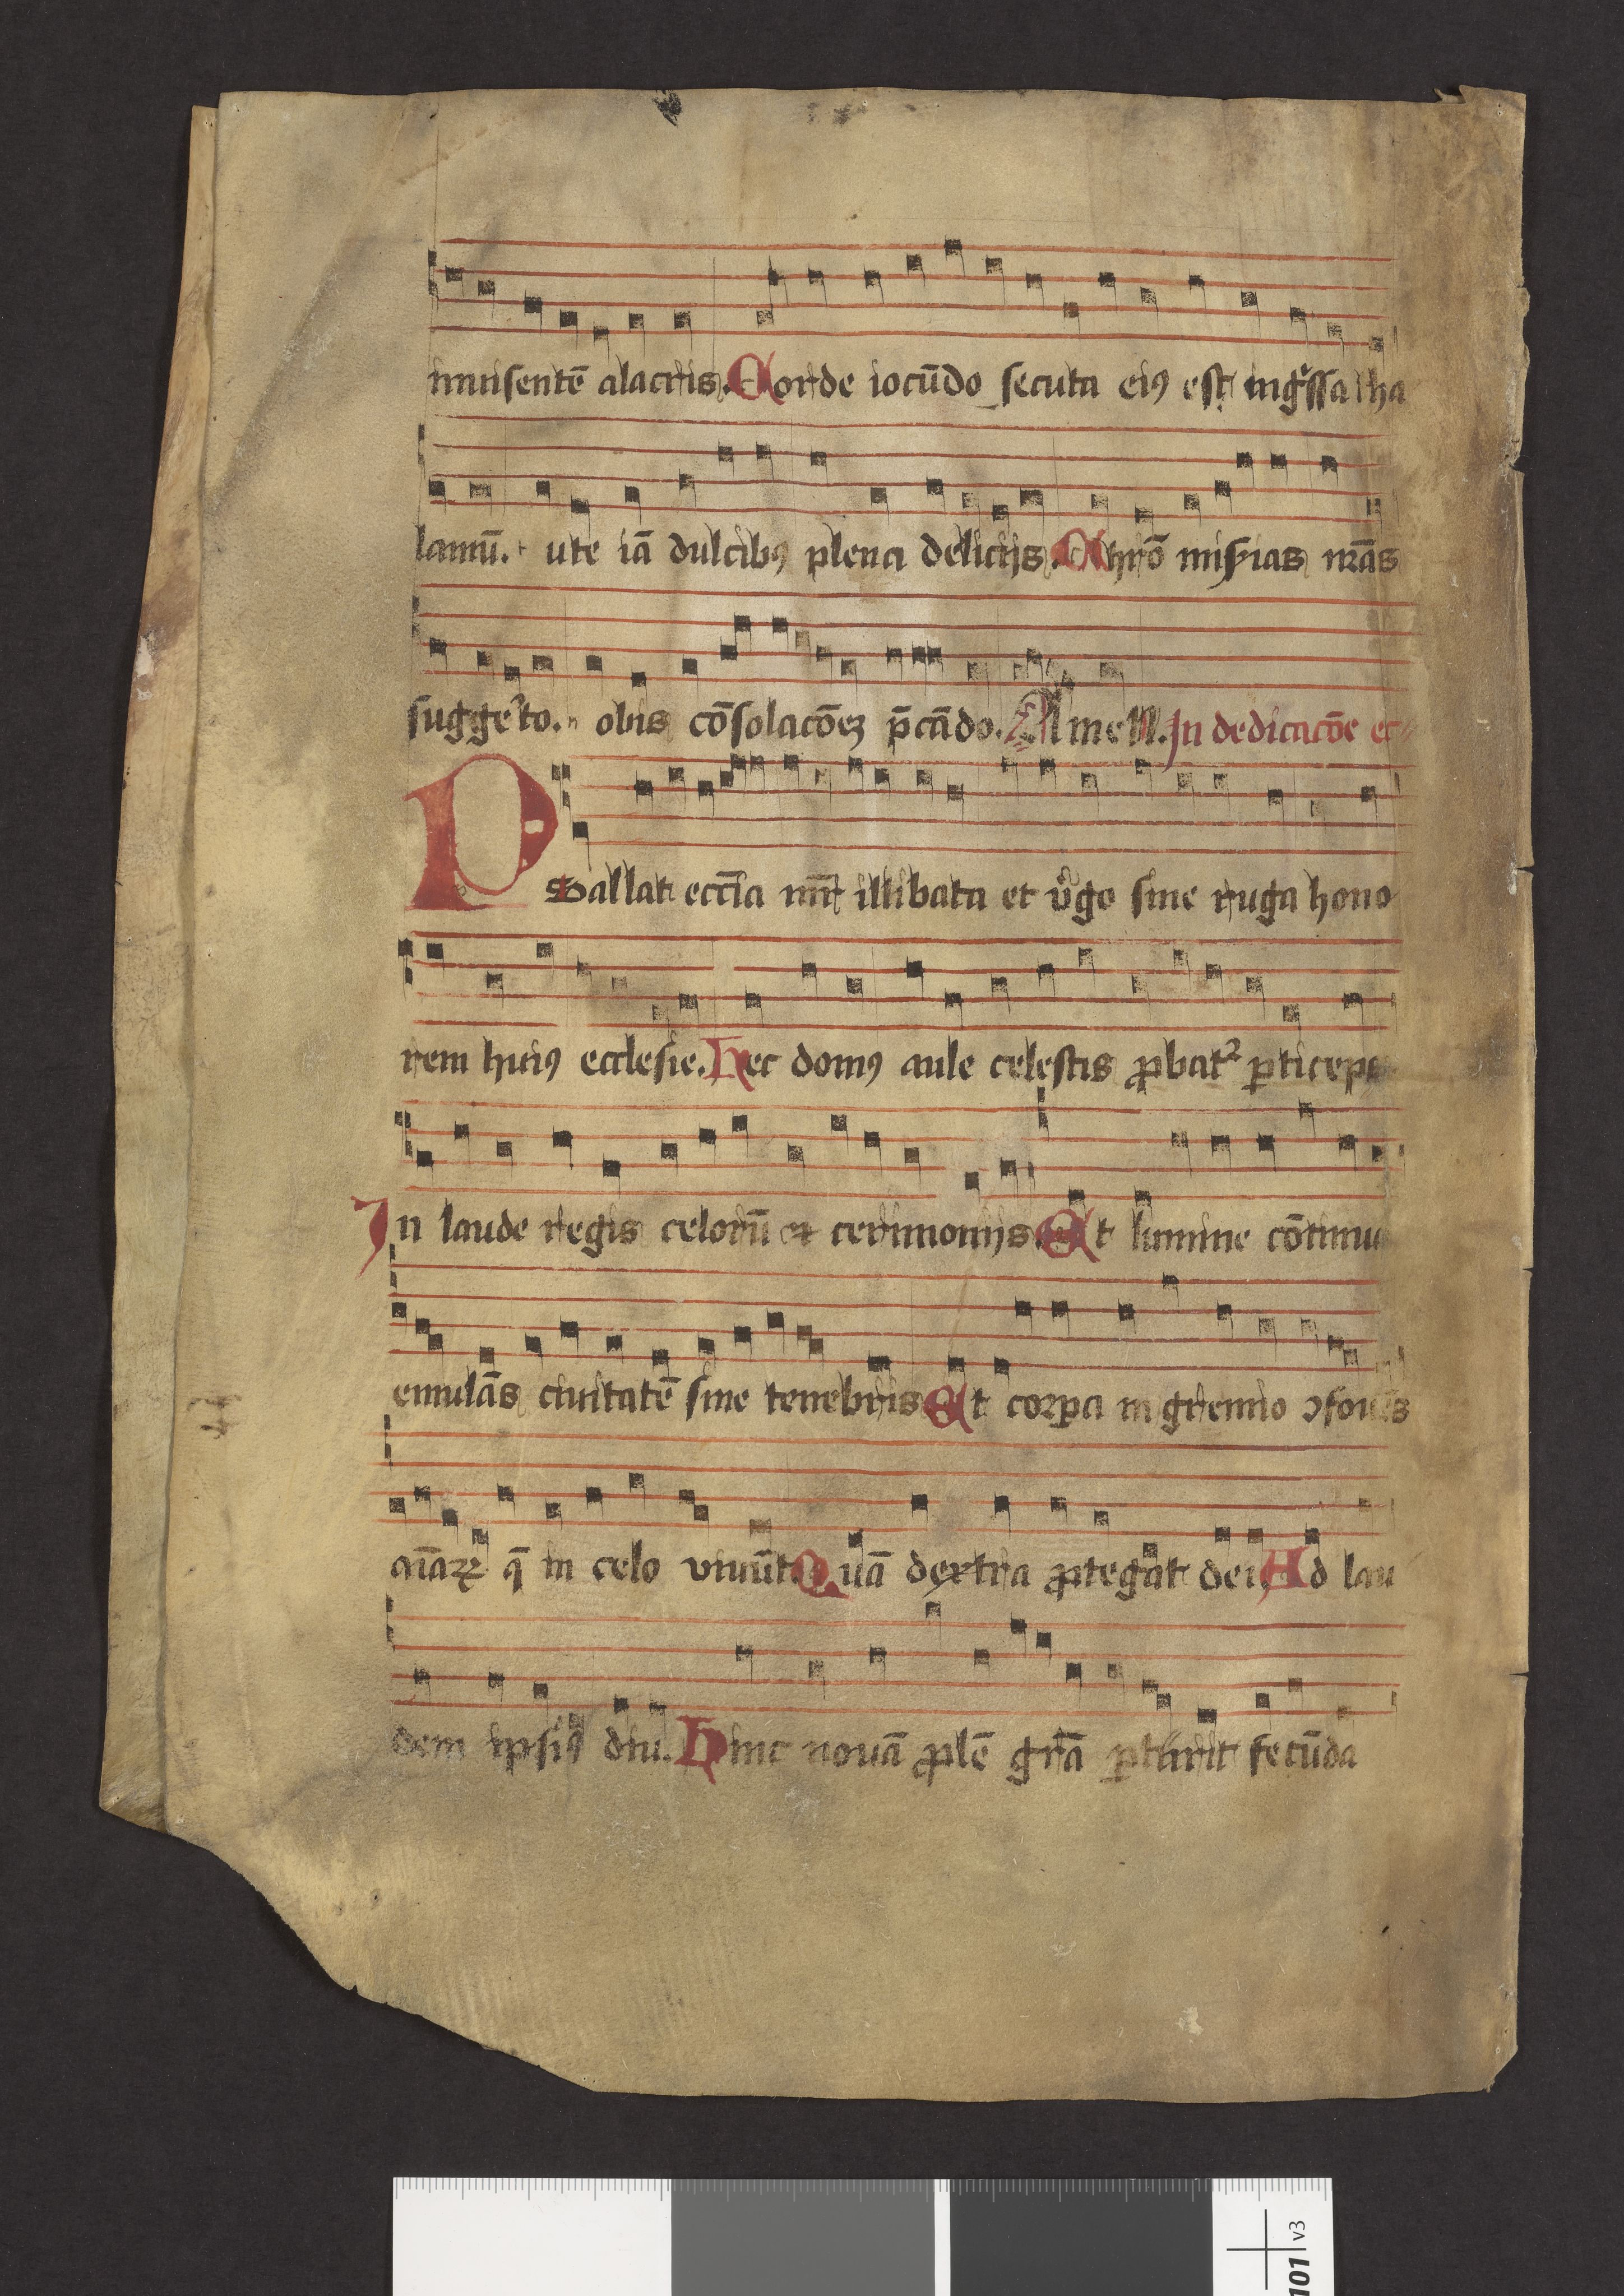 inuisentē alacris. Corde iocūdo secuta eiꝰ est ingͤssa tha
lamū. ute iā dulcibꝰ plena deliciis. Chrō misẜias nr̄as
suggeͬito. obis cōsolacōeꝫ p̄cādo. Amen. In dedicacōe ec
Psallat eccīa mr̄ illibata et vͥgo sine ruga hono
rem huiꝰ ecclesie. Hec domꝰ aule celestis ꝓbat᷑ ꝑticeps
In laude regis celorū et cerimoniis. Et lumine cōtinuo
emulās ciuitatē sine tenebris Et corꝑa in gremio ↄfouēs
aīaꝝ q̄ in celo viuūt. Quā dextra ꝓtegat dei. Ad lau
dem ipsiꝰ diu. Hinc nouā ꝓlē gr̄a ꝑturit fecūda
101 v3